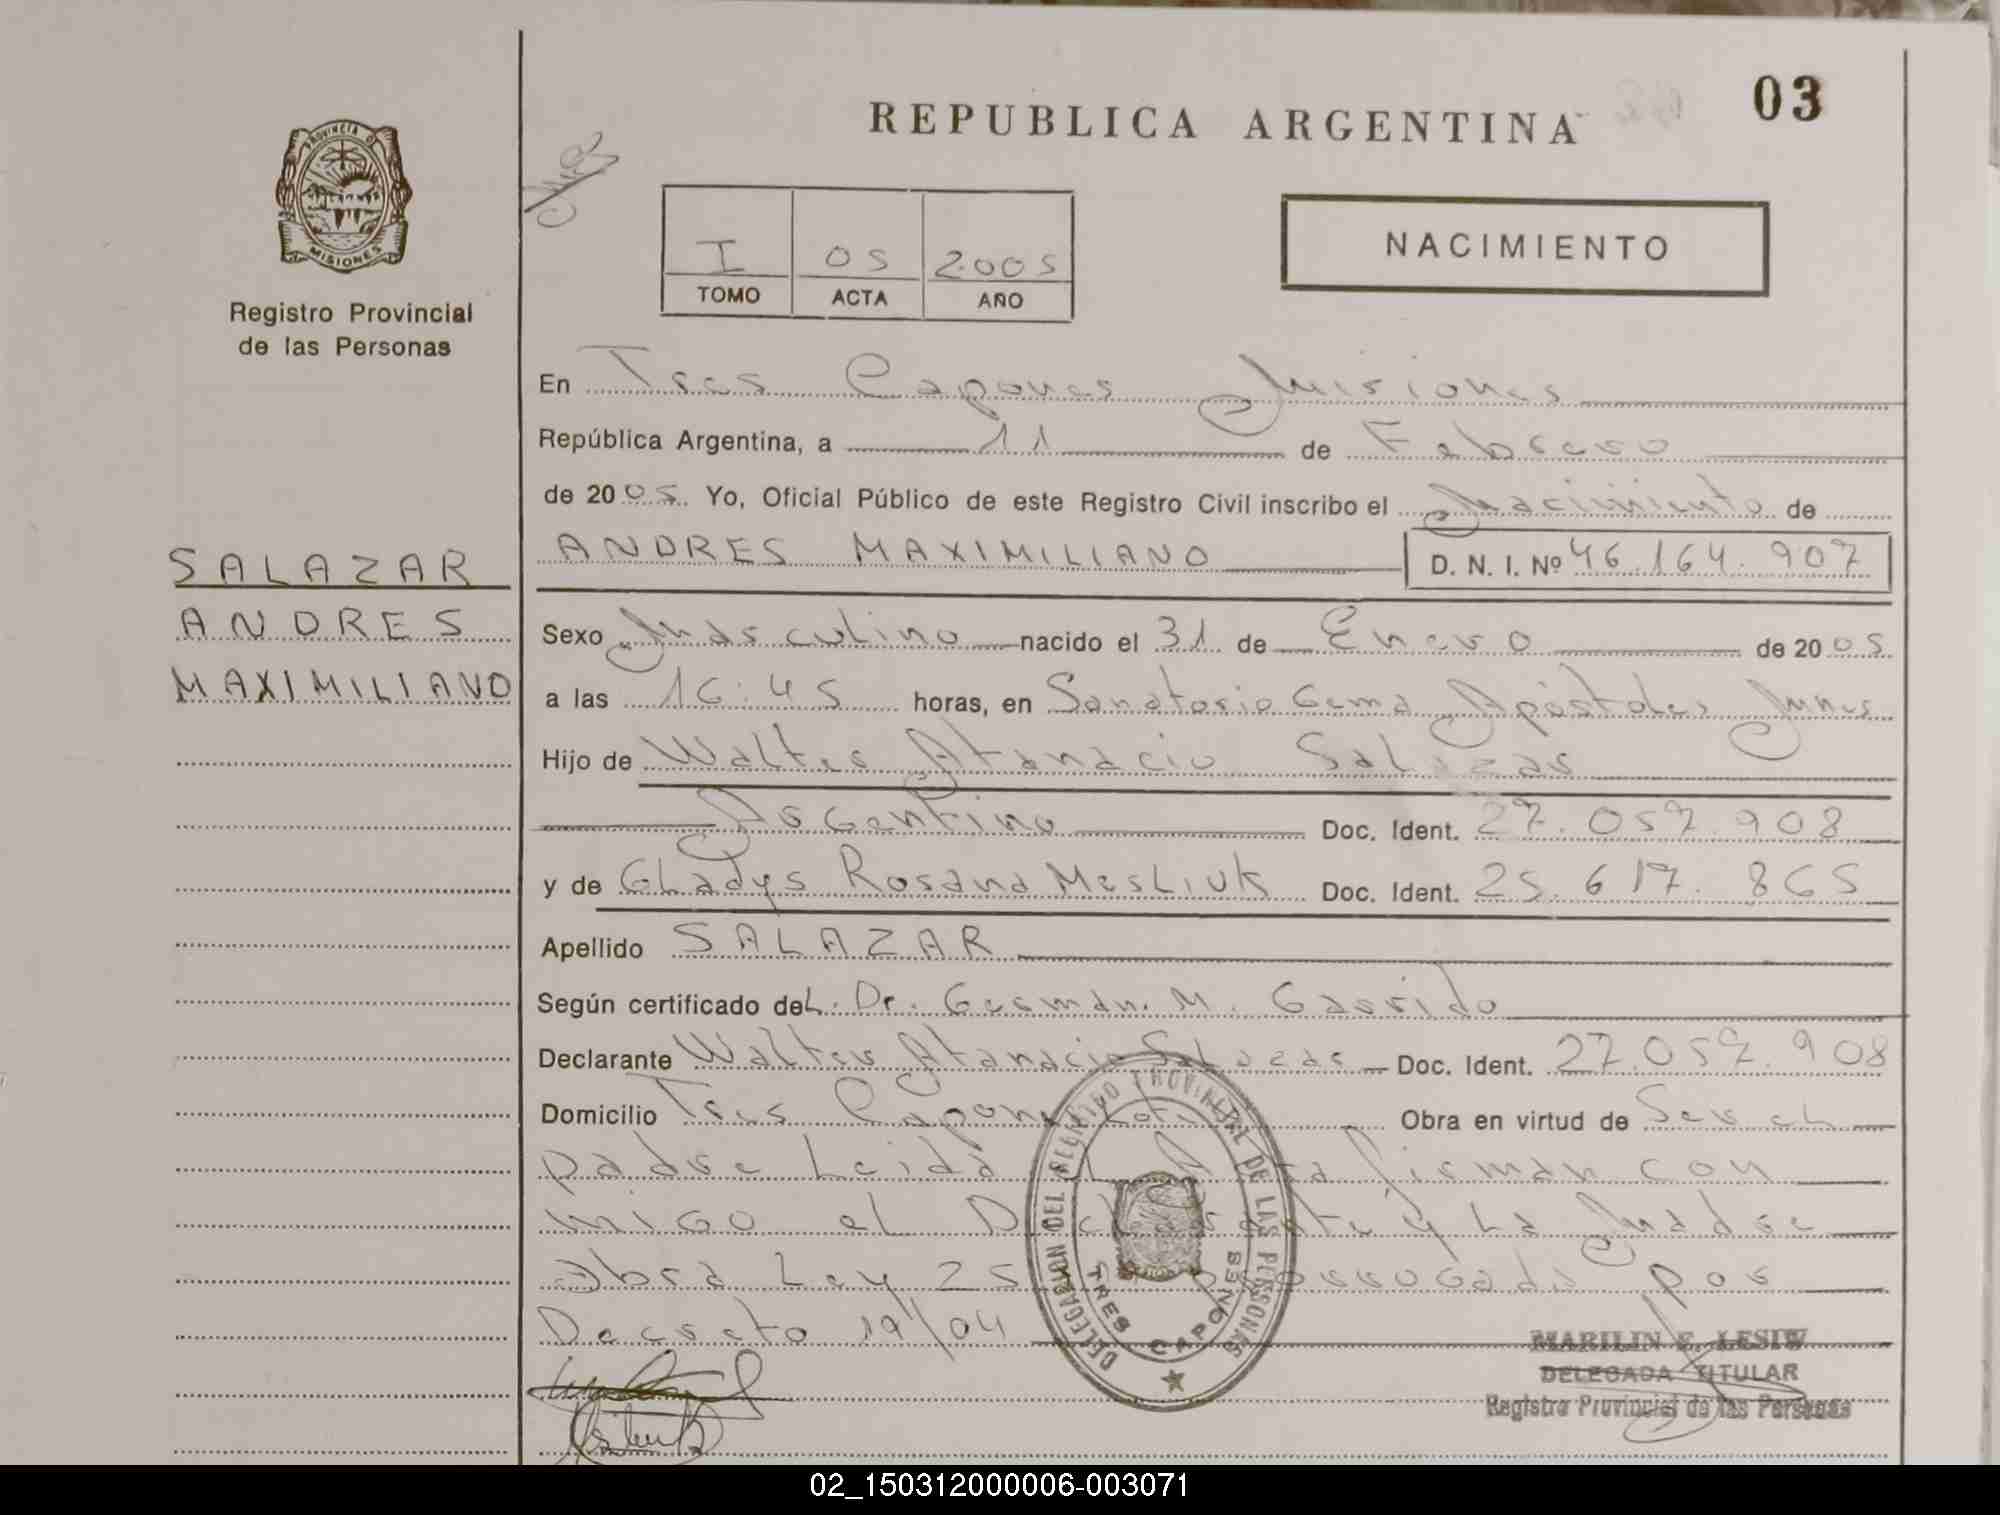 03
REPUBLICA ARGENTINA
PROVINCIA D
MISIONES
Registro Provincial
de las Personas
I 05 2.005
TOMO ACTA AÑO
NACIMIENTO
En Tres Capones Misiones
República Argentina, a 11 de Febrero
de 2005. Yo, Oficial Público de este Registro Civil inscribo el Nacimiento de
ANDRES MAXIMILIANO D. N. I. Nº 46.164.907
SALAZAR
ANDRES
MAXIMILIANO
Sexo Masculino nacido el 31 de Enero de 2005
a las 16:45 horas, en Sanatorio Gema Apóstoles Mnes
Hijo de Walter Atanacio Salazar
Argentino Doc. Ident. 27.057.908
y de Gladys Rosana Mesliuk Doc. Ident. 25.617.865
Apellido SALAZAR
Según certificado del Dr. German. M. Garrido
Declarante Walter Atanacio Salazar Doc. Ident. 27.057.908
Domicilio Tres Capones Obra en virtud de Ser el
padre Leida firman con
migo el Declarante y La Madre
Obra Ley 25 prorrogada por
Decreto 19/04
DELEGACION DEL REGISTRO PROVINCIAL DE LAS PERSONAS
TRES CAPONES
MARILIN E. LESIW
DELEGADA TITULAR
Registro Provincial de las Personas
02_150312000006-003071